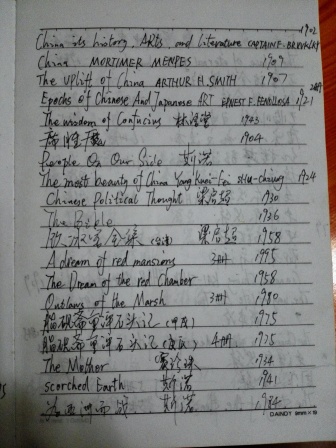 1902
China its history, Arts, and Literature CAPTAINE. BRINKLEY
China MORTIMER MENPES 1909
The Uplift of China ARTHUR H. SMITH 1907
Epochs of Chinese And Japanese ART ERNEST F. FENOLLOSA 1921 2册
The wisdom of Confucius 林语堂 1943
1904
People On Our Side 斯诺
The most beauty of China Yang Kuei-Fei SHU-chiung 1924
Chinese Political Thought 梁启超 1930
The Bible 1936
饮冰室全集 梁启超 1958
A dream of red mansions 3册 1995
The Dream of the red Chamber 1958
Outlaws of the Marsh 3册 1980
脂砚斋重评石头记 1975
脂砚斋重评石头记 4册 1975
The Mother 赛珍珠 1934
scorched Earth 斯诺 1941
为亚洲而战 斯诺 1984
DAINTY 9mm×19